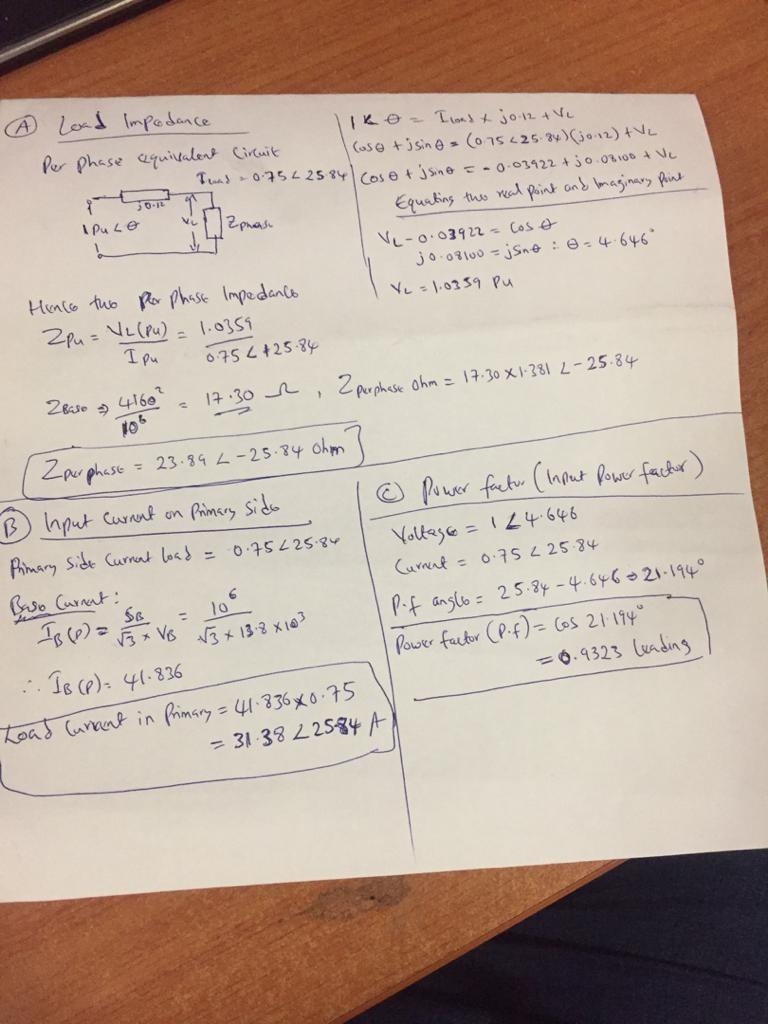 (A) Load Impedance
Per phase equivalent circuit
ILoad = 0.75 < 25.84
j0.12
1 Pu < θ
VL
Zphase
1 < θ = ILoad × j0.12 + VL
Cosθ + jsinθ = (0.75 < 25.84)(j0.12) + VL
Cosθ + jsinθ = - 0.03922 + j0.08100 + VL
Equating two real point and Imaginary point
VL - 0.03922 = Cos θ
j0.08100 = jSinθ : θ = 4.646°
VL = 1.0359 Pu
Hence two Per phase Impedance
ZPu = VL(Pu) / IPu = 1.0359 / 0.75 < +25.84
ZBase ⇒ 4160² / 10⁶ = 17.30 Ω , Zperphase ohm = 17.30 × 1.381 < - 25.84
Zperphase = 23.89 < -25.84 Ohm
(B) Input Current on Primary Side
Primary Side Current load = 0.75 < 25.84
Base Current :
IB(P) = SB / √3 × VB = 10⁶ / √3 × 13.8 × 10³
∴ IB(P) = 41.836
Load Current in Primary = 41.836 × 0.75
= 31.38 < 25.84 A
(C) Power factor (Input Power factor)
Voltage = 1 < 4.646
Current = 0.75 < 25.84
P.f angle = 25.84 - 4.646 ⇒ 21.194°
Power factor (P.f) = Cos 21.194°
= 0.9323 leading